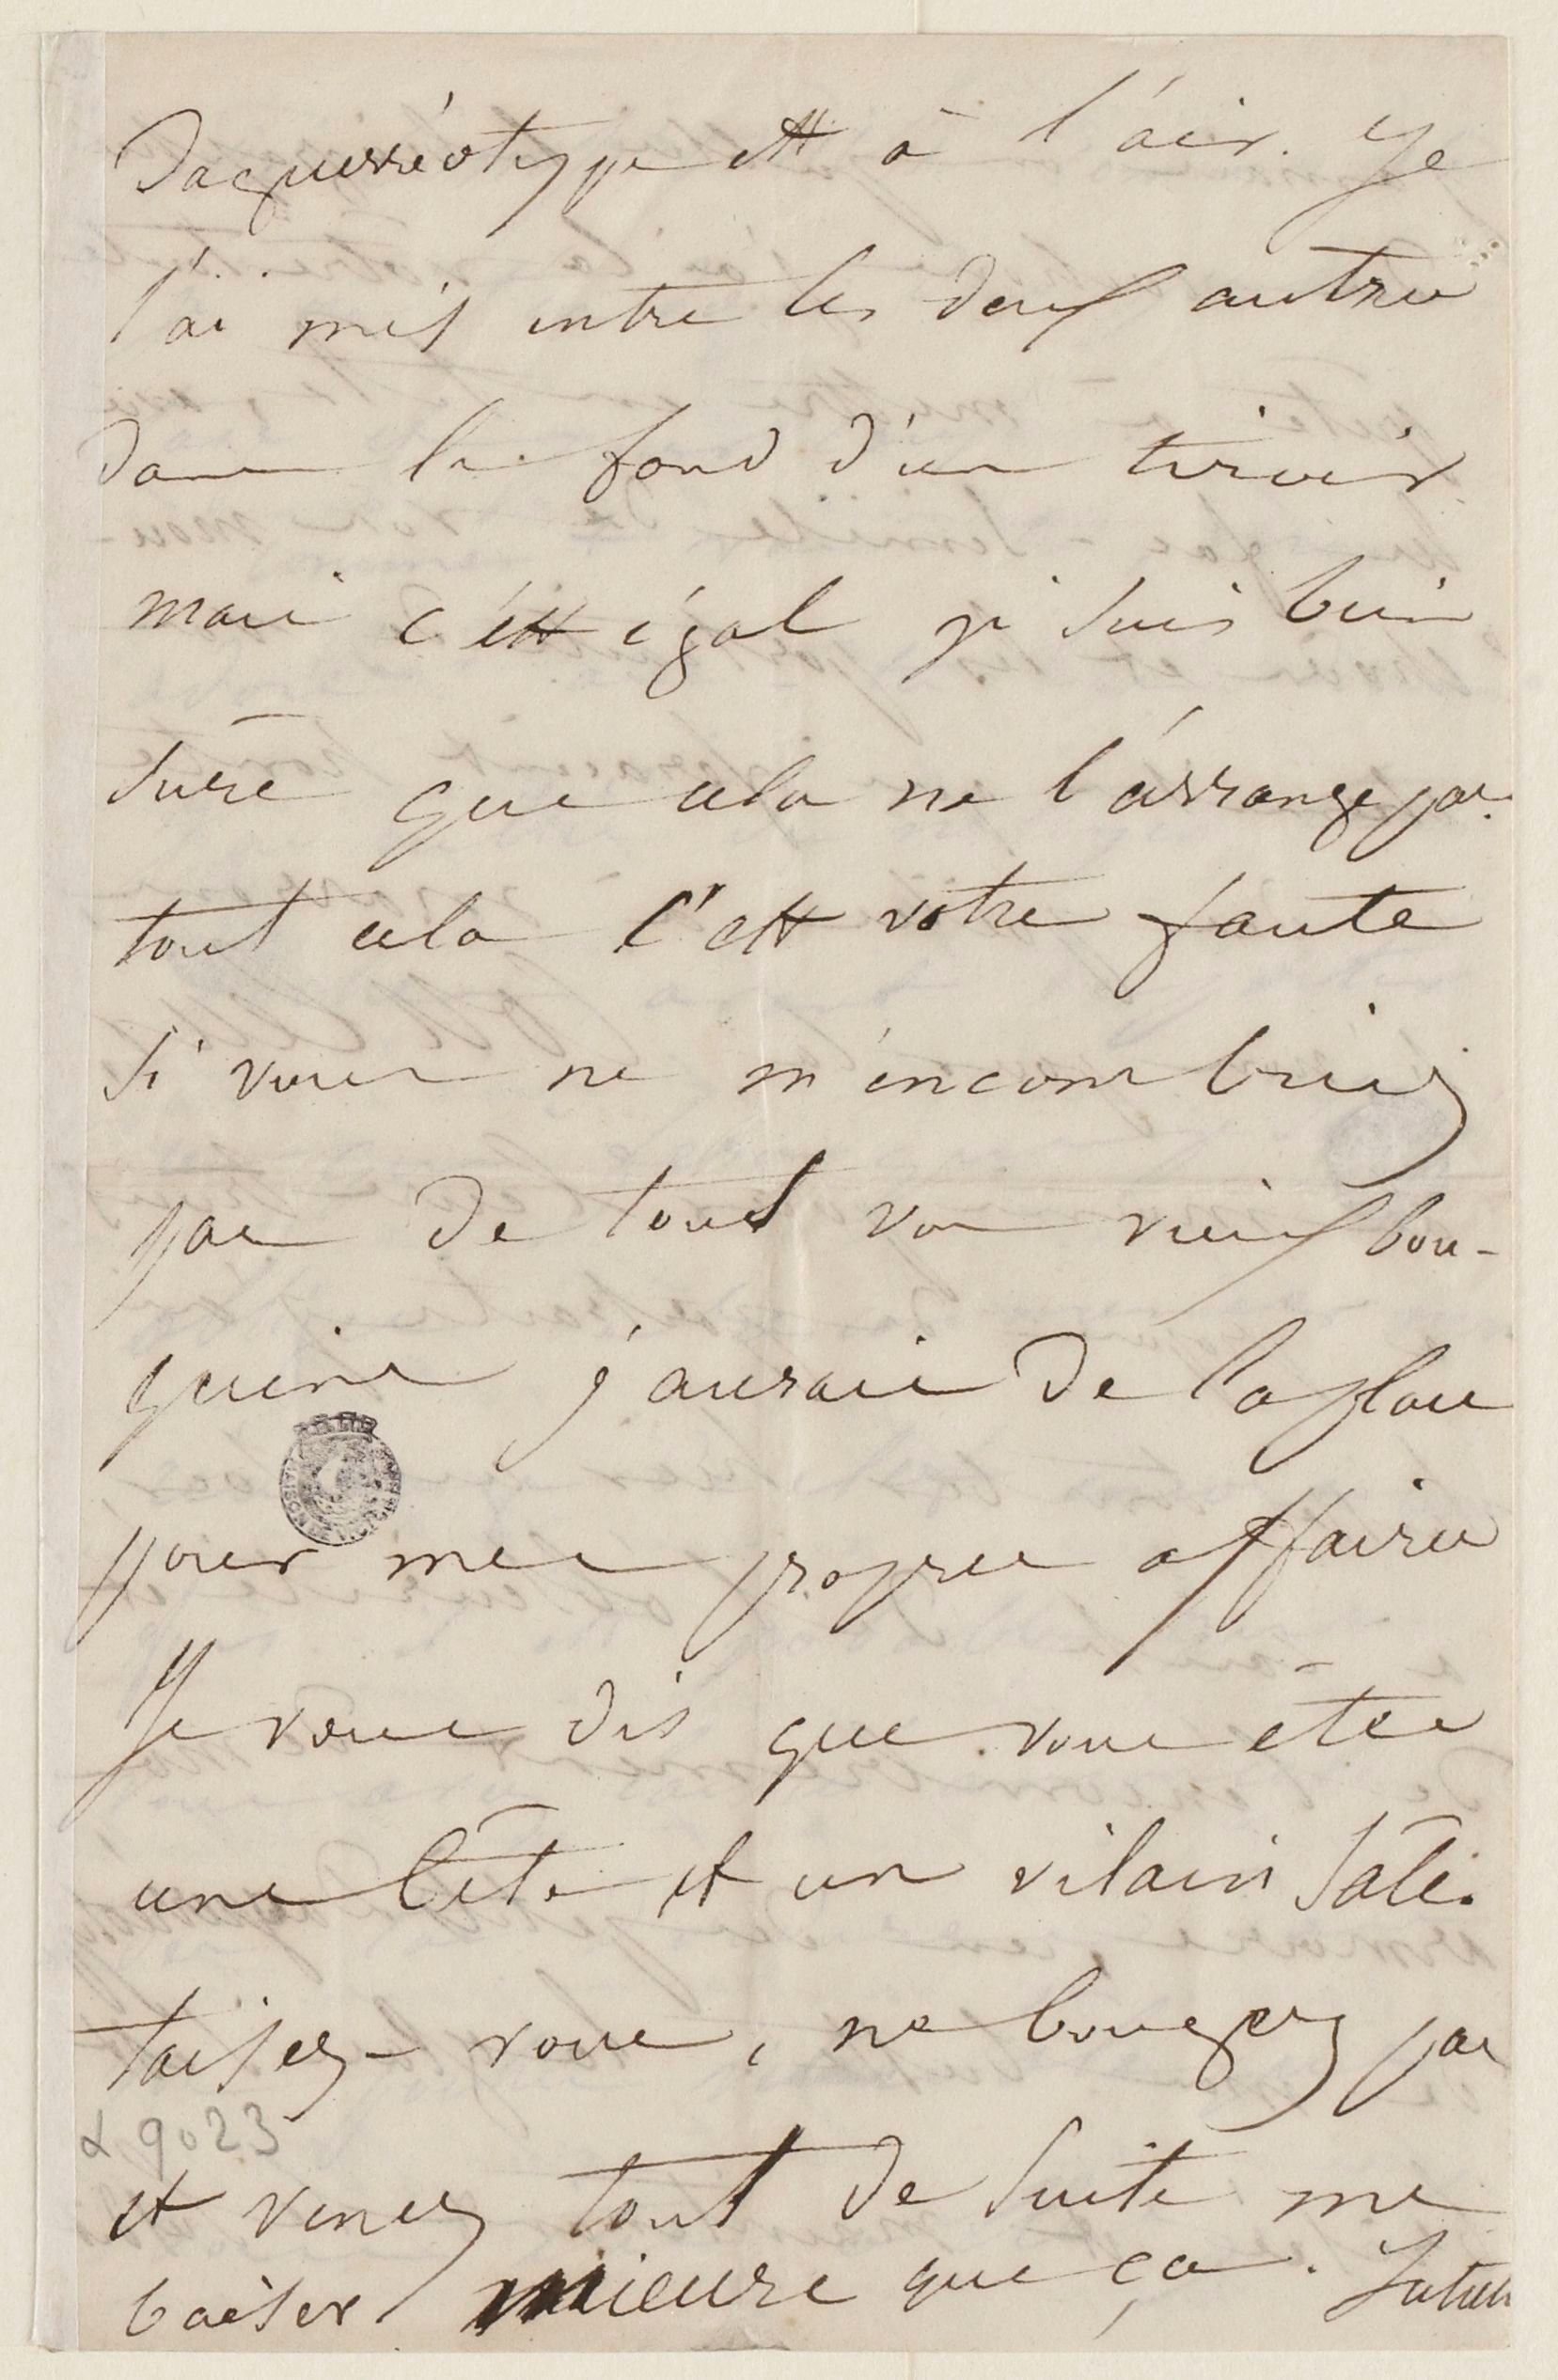 Daguerréotype est à l'air. Je
l'ai mis entre les deux autres
dans le fond d'un tiroir
mais c'est égal je suis bien
sûre que cela ne l'arrange pas.
tout cela c'est votre faute
si vous ne m'encombriez
pas de tous vos vieux bou-
quins j'aurais de la place
pour mes propres affaires
Je vous dis que vous êtes
une bête et un vilain sale.
taisez-vous, ne bougez pas
α 9023
et venez tout de suite me
baiser mieux que ça. Juliette